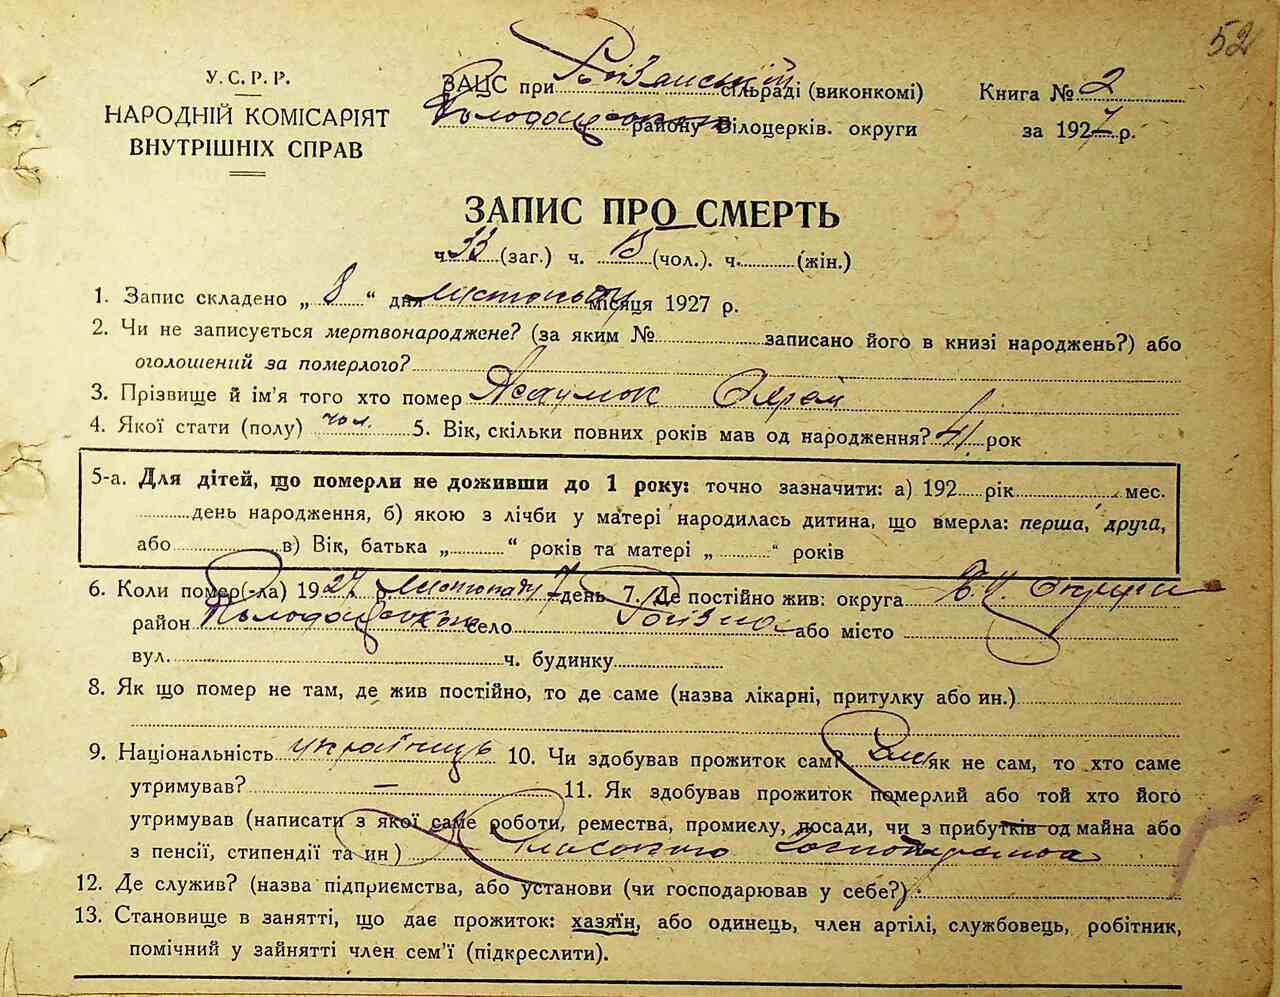 52
У.С.Р.Р.
НАРОДНІЙ КОМІСАРІЯТ
ВНУТРІШНІХ СПРАВ
ЗАЦС при сільраді (виконкомі)
району Білоцерків. округи
Книга № 2
за 1927 р.
ЗАПИС ПРО СМЕРТЬ
ч. 33 (заг.) ч. (чол.). ч. (жін.)
1. Запис складено „ 8 “ дня листопаду місяця 1927 р.
2. Чи не записується мертвонароджене? (за яким № записано його в книзі народжень?) або
оголошений за померлого?
3. Прізвище й ім'я того хто помер
4. Якої стати (полу) чол. 5. Вік, скільки повних років мав од народження? 41 рок
5-а. Для дітей, що померли не доживши до 1 року: точно зазначити: а) 192 рік мес.
день народження, б) якою з лічби у матері народилась дитина, що вмерла: перша, друга,
або в) Вік, батька „ “ років та матері „ “ років
6. Коли помер(-ла) 1927 р. листопаду 7 день 7. Де постійно жив: округа Б.Ц. Округи
район село або місто
вул. ч. будинку
8. Як що помер не там, де жив постійно, то де саме (назва лікарні, притулку або ин.)
9. Національність українець 10. Чи здобував прожиток сам? сам як не сам, то хто саме
утримував? — 11. Як здобував прожиток померлий або той хто його
утримував (написати з якої саме роботи, ремества, промислу, посади, чи з прибутків од майна або
з пенсії, стипендії та ин)
12. Де служив? (назва підприємства, або установи (чи господарював у себе?)
13. Становище в занятті, що дає прожиток: хазяїн, або одинець, член артілі, службовець, робітник,
помічний у зайнятті член сем'ї (підкреслити).